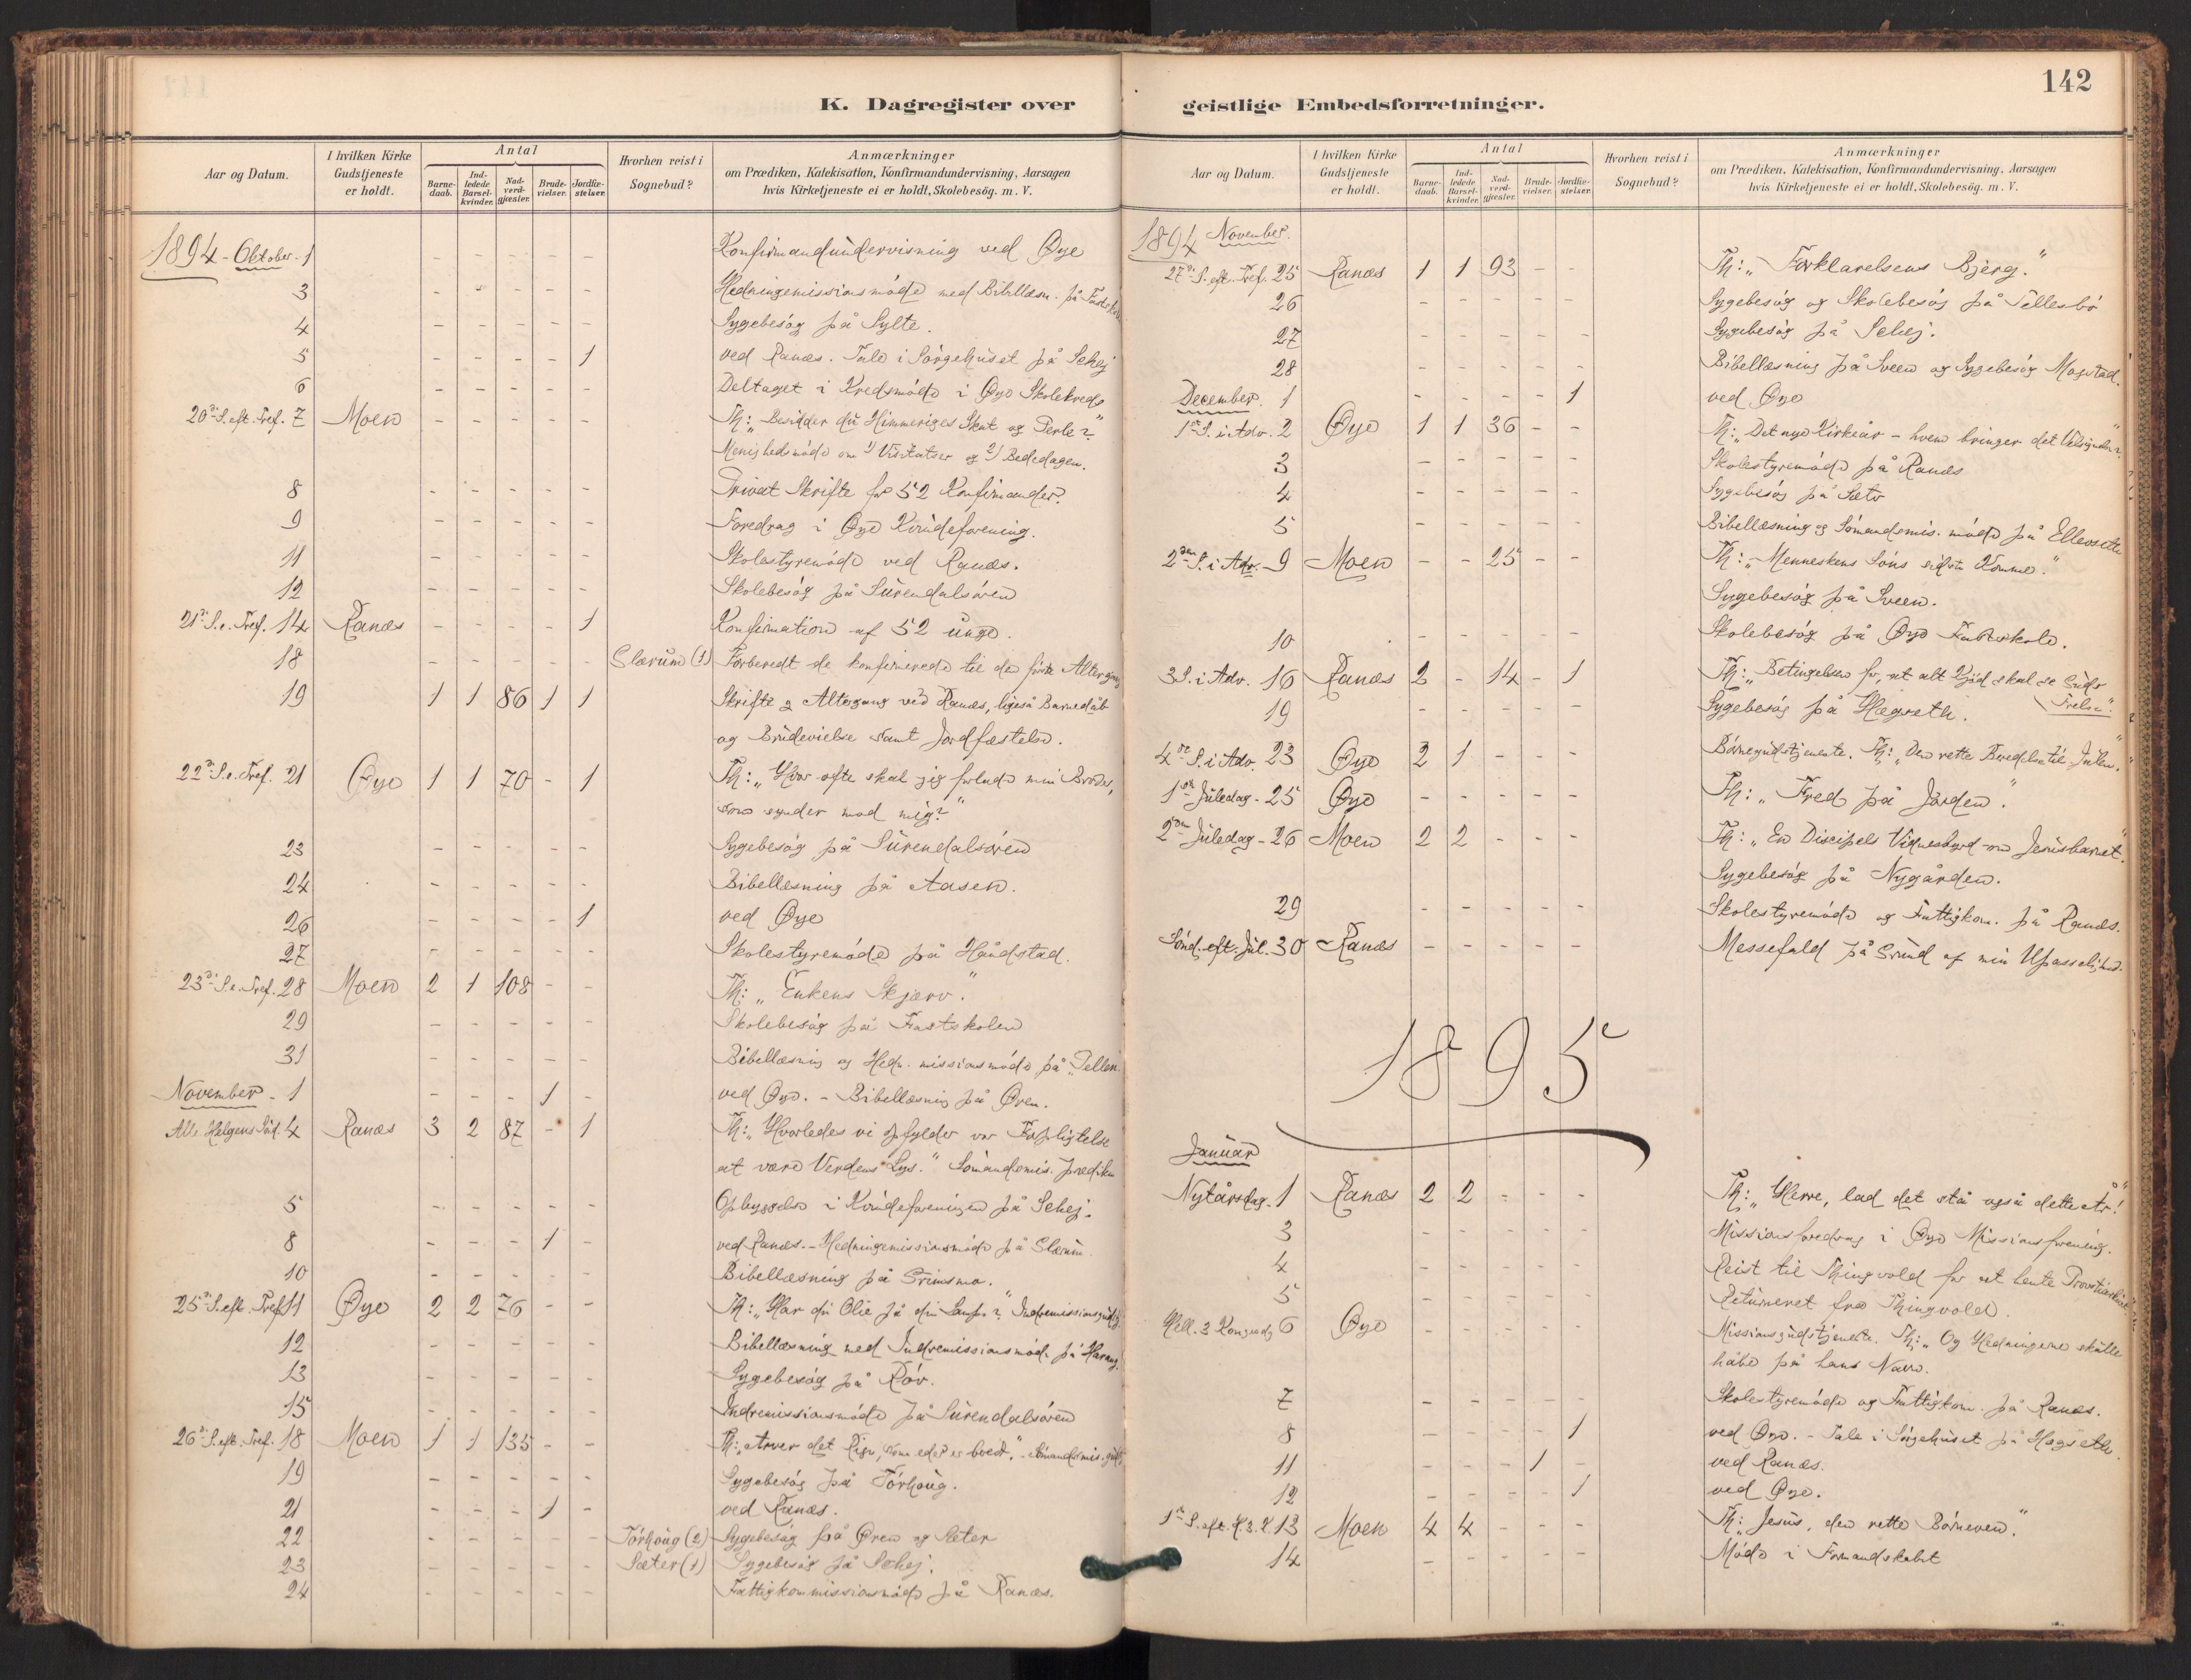 142
K. Dagregister over
geistlige Embedsforretninger.
Aar og Datum.
I hvilken Kirke Gudstjeneste er holdt.
Antal
Barne-daab.
Ind-ledede Barsel-kvinder.
Nad-verd-gjæster.
Brude-vielser.
Jordfæ-stelser.
Hvorhen reist i Sognebud?
Anmærkninger
om Prædiken, Katekisation, Konfirmandundervisning, Aarsagen
hvis Kirketjeneste ei er holdt, Skolebesög. m. V.
1894 - Oktober - 1 - - - - - Konfirmandundervisning ved Øye
3 - - - - - Hedningemissionsmöde med Bibellæsn. på
4 - - - - - Sygebesög på Sylte.
5 - - - - 1 ved Ranæs. Tale i Sörgehuset på Schej
6 - - - - - Deltaget i Kredsmöde i Øye Skolekreds
20de S. eft. Tref. 7 Moen - - - - - Th: "Besidder du Himmeriges Skat og Perle?"
Menighedsmöde om 1) Visitatser og 2) Bededagen.
8 - - - - - Privat Skrifte for 52 Konfirmander.
9 - - - - - Foredrag i Øye Kvindeforening.
11 - - - - - Skolestyremöde ved Ranæs.
12 - - - - - Skolebesög på Surendalsören
21de S. e. Tref. 14 Ranæs - - - - 1 Konfirmation af 52 unge.
18 - - - - - Glærum (1) Forberedt de konfirmerede til de förste Altergang
19 1 1 86 1 1 Skrifte & Altergang ved Ranæs, ligeså Barnedåb
og Brudevielse samt Jordfæstelse.
22de S. e. Tref. 21 Øye 1 1 70 - 1 Th: "Hvor ofte skal jeg forlade min Broder,
som synder mod mig?"
23 - - - - - Sygebesög på Surendalsören
24 - - - - - Bibellæsning på Aasen.
26 - - - - 1 ved Øye
27 - - - - - Skolestyremöde på Håndstad.
23de S. e. Tref. 28 Moen 2 1 108 - - Th: "Enkens Skjærv."
29 - - - - - Skolebesög på Fastskolen
31 - - - - - Bibellæsning og Hedn. missionsmöde på
November - 1 - - - 1 - ved Øye. - Bibellæsning på Øren.
Alle Helgens Sönd. 4 Ranæs 3 2 87 - 1 Th: "Hvorledes vi opfylder vor Forpligtelse
at være Verdens Lys." Sömandsmis. prædiken
5 - - - - - Opbyggelse i Kvindeforeningen på Schej.
8 - - - 1 - ved Ranæs. - Hedningemissionsmöde på Glærum.
10 - - - - - Bibellæsning på Grimsmo.
25de S. eft. Tref. 11 Øye 2 2 76 - - Th: "Har du Olie på din Lampe?"
12 - - - - - Bibellæsning med Indremissionsmöd. på Harang.
13 - - - - - Sygebesög på Röv.
15 - - - - - Indremissionsmöde på Surendalsören
26de S. eft. Tref. 18 Moen 1 1 135 - - Th: "Arver det Rige, som eder er beredt."
19 - - - - - Sygebesög på Törhoug.
21 - - - 1 - ved Ranæs.
22 - - - - - Törhoug (2) Sygebesög på Øren og Sæter
23 - - - - - Sæter (1) Sygebesög på Schej.
24 - - - - - Fattigkommissionsmöde på Ranæs.
Aar og Datum.
I hvilken Kirke Gudstjeneste er holdt.
Antal
Barne-daab.
Ind-ledede Barsel-kvinder.
Nad-verd-gjæster.
Brude-vielser.
Jordfæ-stelser.
Hvorhen reist i Sognebud?
Anmærkninger
om Prædiken, Katekisation, Konfirmandundervisning, Aarsagen
hvis Kirketjeneste ei er holdt, Skolebesög. m. V.
1894 November.
27de S. eft. Tref. 25 Ranæs 1 1 93 - - Th: "Forklarelsens Bjerg."
26 - - - - - Sygebesög og Skolebesög på Tellesbö
27 - - - - - Sygebesög på Schej.
28 - - - - - Bibellæsning på Sveen og Sygebesög Mogstad.
December. 1 - - - - 1 ved Øye
1ste S. i Adv. 2 Øye 1 1 36 - - Th: "Det nye Kirkeår - hvem bringer det Velsignelse?"
3 - - - - - Skolestyremöde på Ranæs
4 - - - - - Sygebesög på Sæter
5 - - - - - Bibellæsning og Sömandsmis. möde på
2den S. i Adv. 9 Moen - - 25 - - Th: "Menneskens Söns sidste Komme."
Sygebesög på Sveen.
10 - - - - - Skolebesög på Øye Fastskole.
3 S. i Adv. 16 Ranæs 2 - 14 - 1 Th: "Betingelsen for, at alt Kjöd skal se Guds Frelse".
19 - - - - - Sygebesög på Hægseth.
4de S. i Adv. 23 Øye 2 1 - - - Börnegudstjeneste. Th: "Den rette Beredelse til Julen."
1ste Juledag - 25 Øye - - - - - Th: "Fred på Jorden."
2den Juledag - 26 Moen 2 2 - - - Th: "En Discipels Vidnesbyrd om Jesusbarnet."
Sygebesög på Nygården.
29 - - - - - Skolestyremöde og Fattigkom. på Ranæs.
Sönd. eft. Jul. 30 Ranæs - - - - - Messefald på Grund af min Upasselighed.
1895
Januar
Nytårsdag. 1 Ranæs 2 2 - - - Th: "Herre, lad det stå også dette År!"
3 - - - - - Missionsforedrag i Øye Missionsforening.
4 - - - - - Reist til Thingvold for at hente
5 - - - - - Returneret fra Thingvold.
Hell. 3 Kongedg 6 Øye - - - - - Missionsgudstjeneste. Th: "Og Hedningerne skulle
håbe på hans Navn.
7 - - - - - Skolestyremöde og Fattigkom. på Ranæs.
8 - - - - 1 ved Øye. - Tale i Sörgehuset på Hægseth.
11 - - - 1 - ved Ranæs.
12 - - - - 1 ved Øye.
1ste S. eft. H. 3 K. 13 Moen 4 4 - - - Th: "Jesus, den rette Börneven."
14 - - - - - Möde i Formandskabet